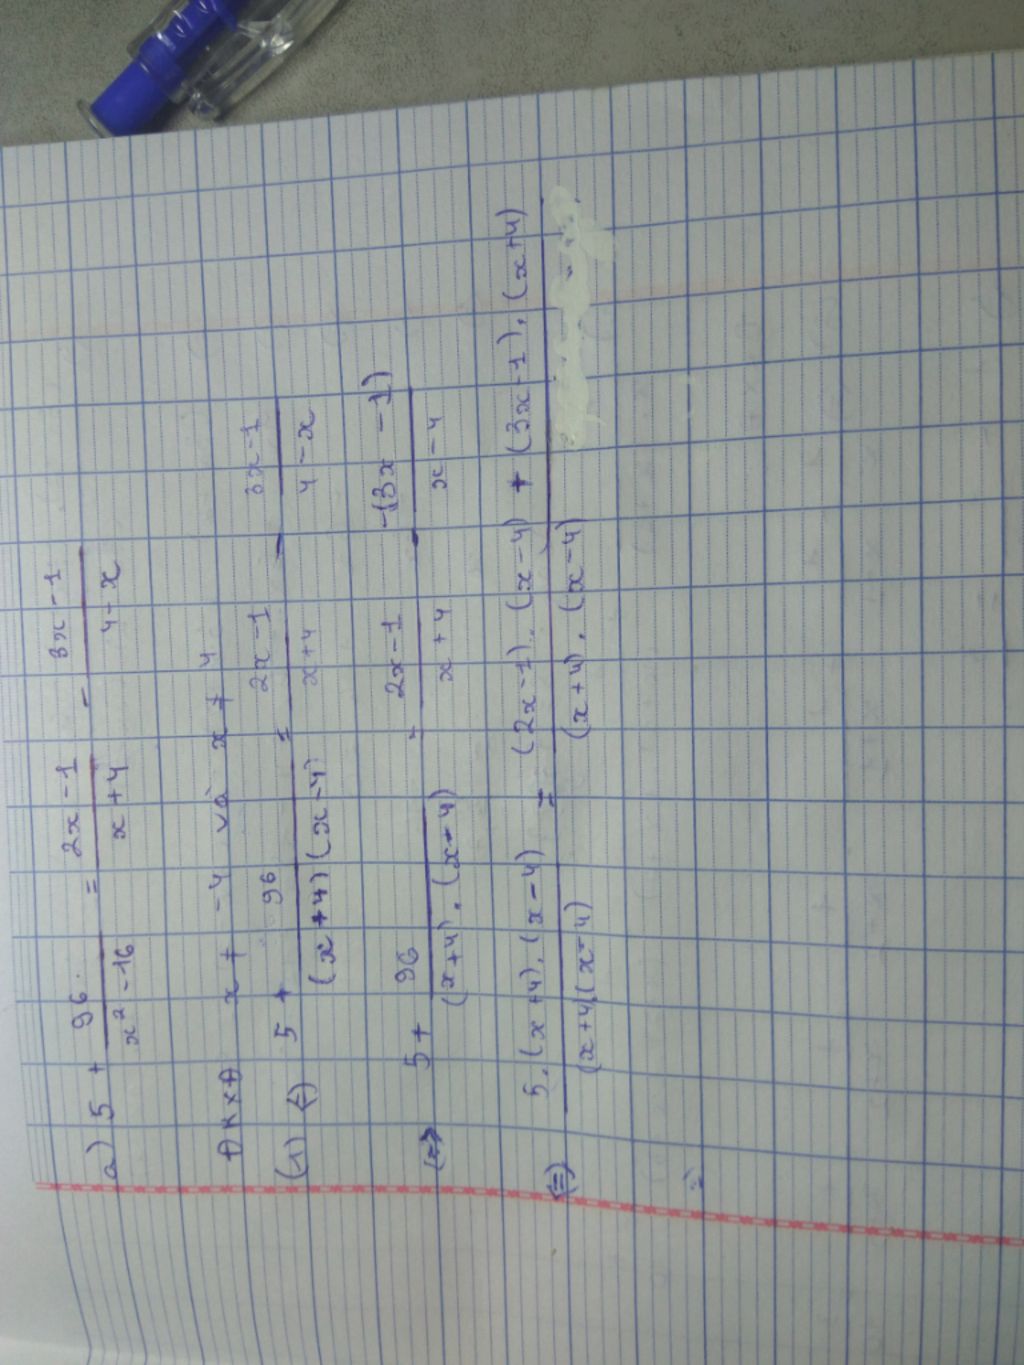 a) 5 + 96/(x² - 16) = (2x - 1)/(x + 4) - (3x - 1)/(4 - x)
ĐKXĐ x ≠ -4 và x ≠ 4
(1) ⇔ 5 + 96/((x + 4)(x - 4)) = (2x - 1)/(x + 4) - (3x - 1)/(4 - x)
⇔ 5 + 96/((x + 4).(x - 4)) = (2x - 1)/(x + 4) - (-(3x - 1))/(x - 4)
⇔ (5.(x + 4).(x - 4))/((x + 4)(x - 4)) = ((2x - 1).(x - 4) + (3x - 1).(x + 4))/((x + 4).(x - 4))